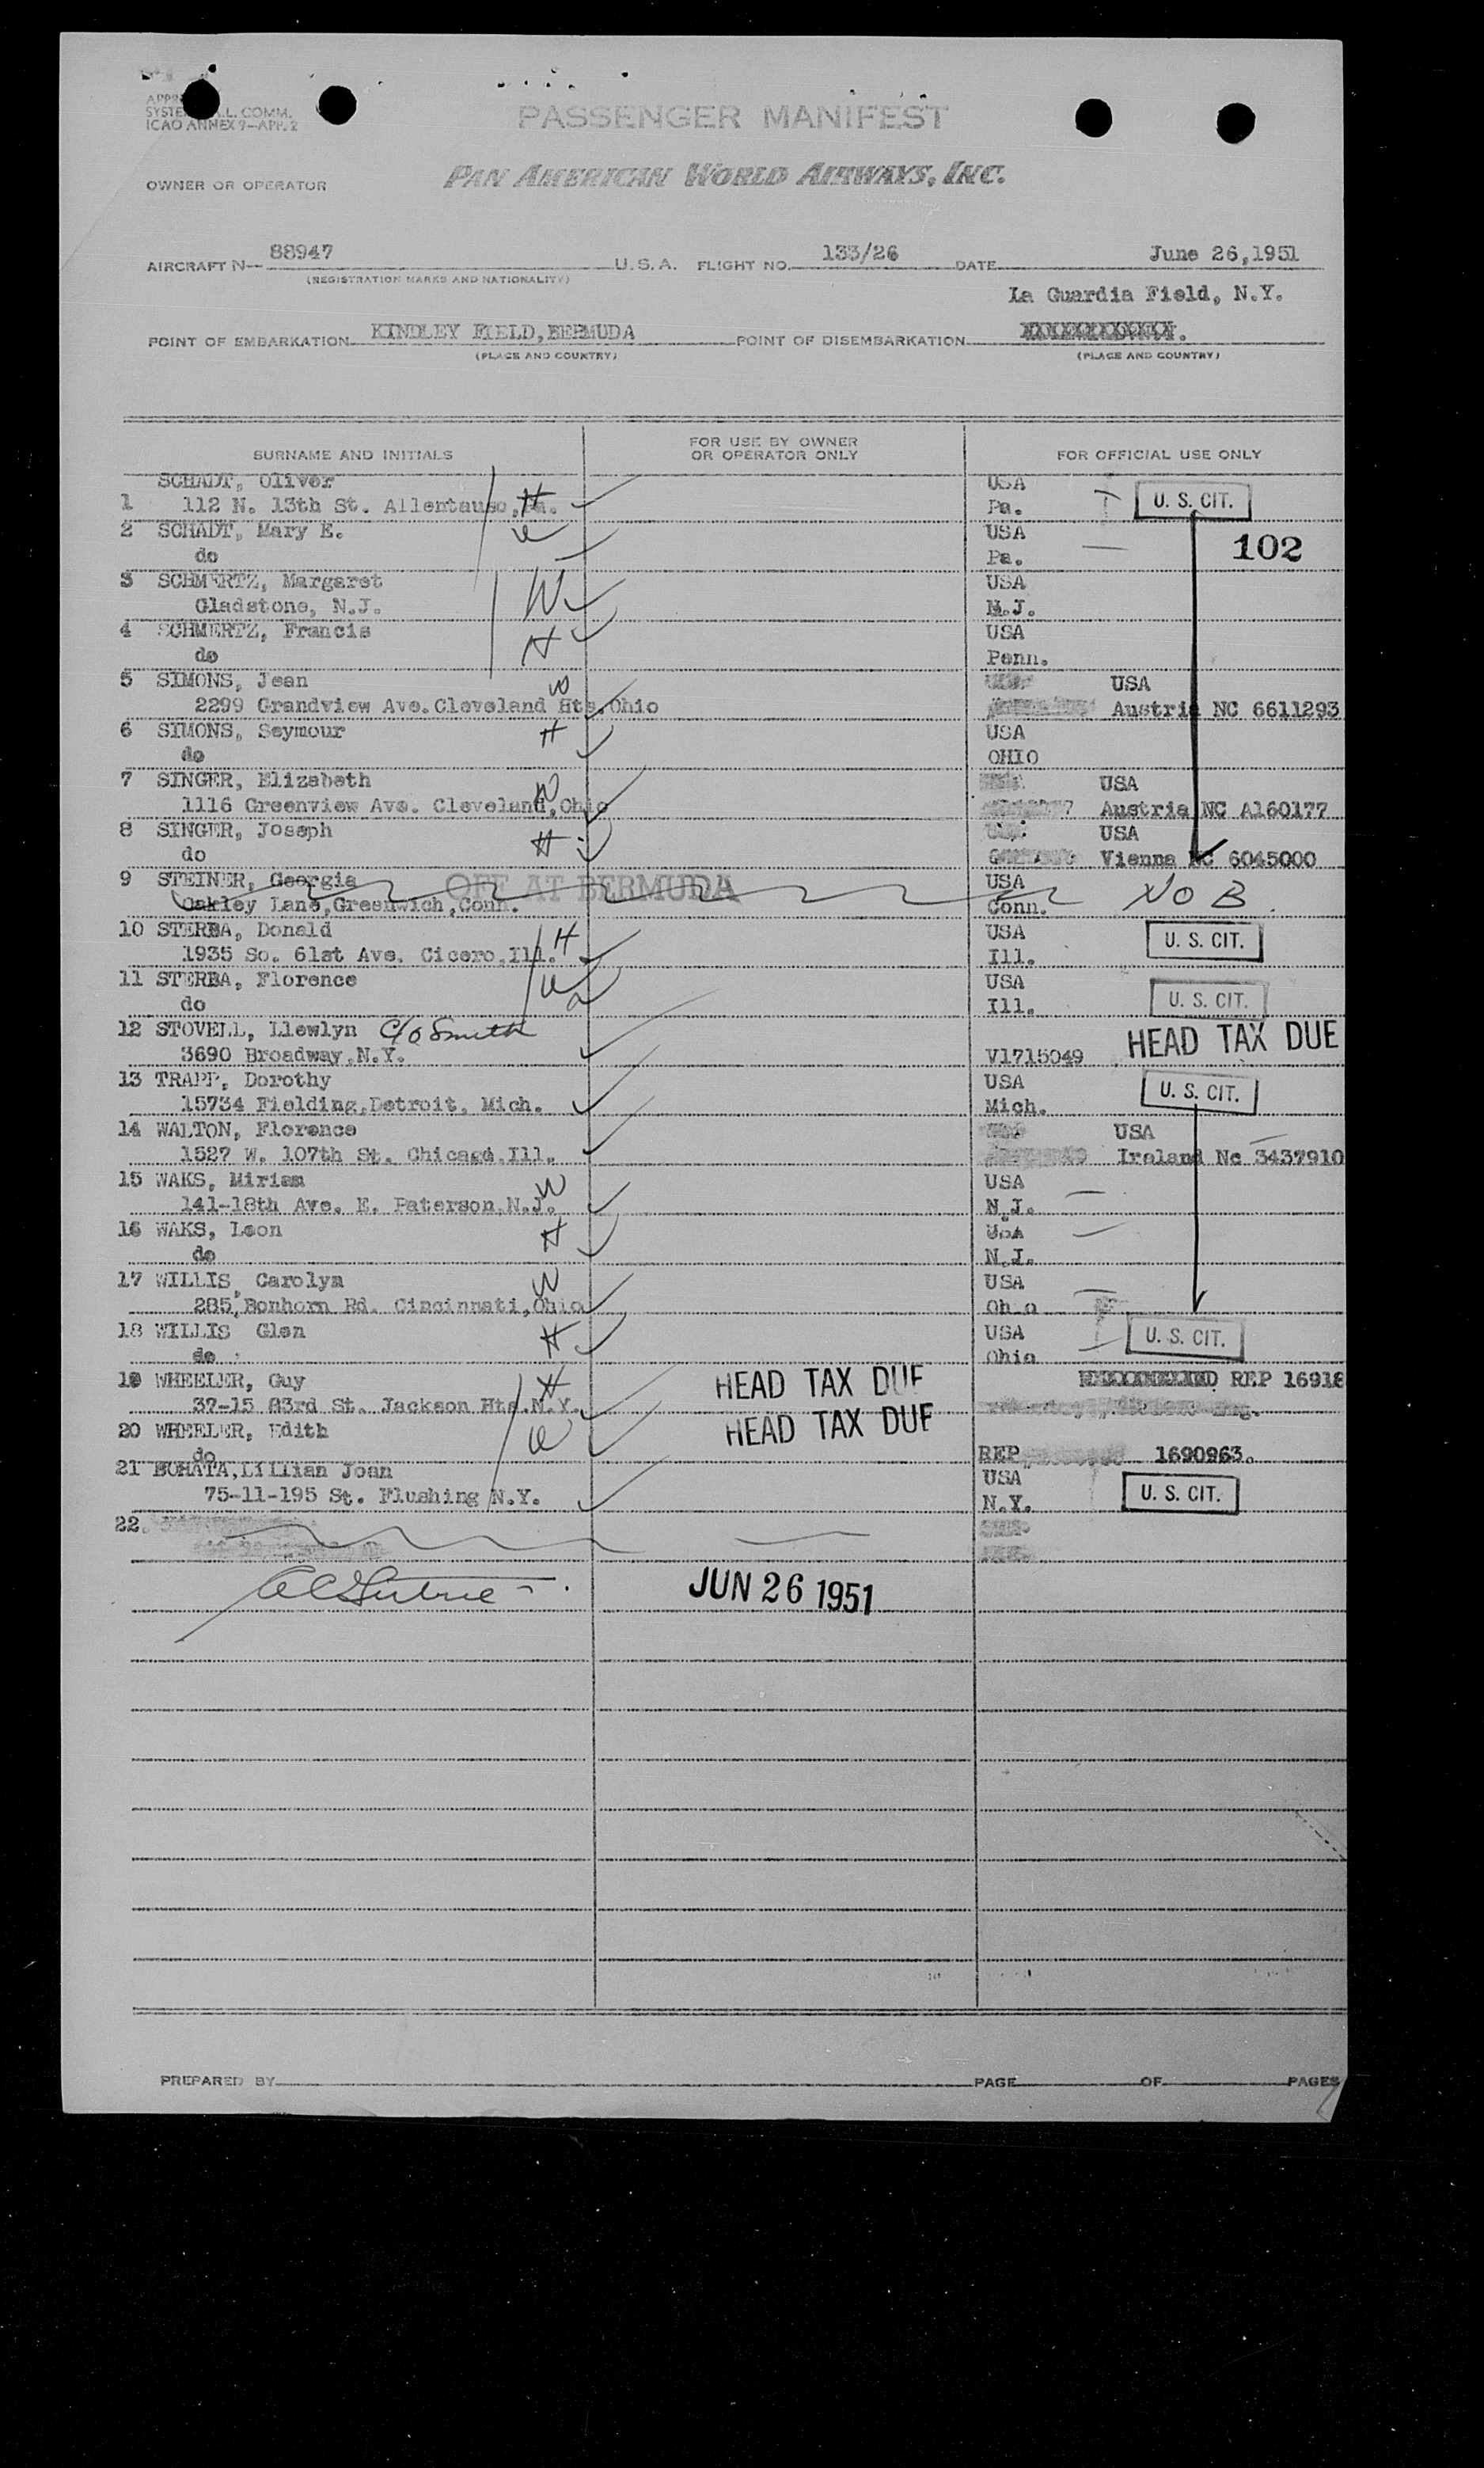 SYSTE L. COMM.
ICAO ANNEX 9-APP. 2
PASSENGER MANIFEST
OWNER OR OPERATOR PAN AMERICAN WORLD AIRWAYS, INC.
AIRCRAFT N- 88947 U.S.A. FLIGHT NO. 133/26 DATE June 26,1951
(REGISTRATION MARKS AND NATIONALITY)
La Guardia Field, N.Y.
POINT OF EMBARKATION KINDLEY FIELD,BERMUDA POINT OF DISEMBARKATION XXXXXXXXXXXX.
(PLACE AND COUNTRY) (PLACE AND COUNTRY)
SURNAME AND INITIALS FOR USE BY OWNER OR OPERATOR ONLY FOR OFFICIAL USE ONLY
SCHADT, Oliver USA
1 112 N. 13th St. Allentauso,Pa. H Pa. U. S. CIT.
2 SCHADT, Mary E. W USA 102
do Pa.
3 SCHMERTZ, Margaret W USA
Gladstone, N.J. N.J.
4 SCHMERTZ, Francis H USA
do Penn.
5 SIMONS, Jean W USA
2299 Grandview Ave.Cleveland Hts.Ohio Austria NC 6611293
6 SIMONS, Seymour H USA
do OHIO
7 SINGER, Elizabeth W USA
1116 Greenview Ave. Cleveland,Ohio Austria NC A160177
8 SINGER, Joseph H USA
do Vienna NC 6045000
9 STEINER, Georgia OFF AT BERMUDA USA
Oakley Lane,Greenwich,Conn. Conn. NO B
10 STERBA, Donald H USA
1935 So. 61st Ave. Cicero,Ill. Ill. U. S. CIT.
11 STERBA, Florence W USA
do Ill. U. S. CIT.
12 STOVELL, Llewlyn C/o Smith HEAD TAX DUE
3690 Broadway,N.Y. V1715049
13 TRAPP, Dorothy USA
15734 Fielding,Detroit, Mich. Mich. U. S. CIT.
14 WALTON, Florence USA
1527 W. 107th St. Chicago,Ill. Ireland Nc 3437910
15 WAKS, Miriam W USA
141-18th Ave. E. Paterson,N.J. N.J.
16 WAKS, Leon H USA
do N.J.
17 WILLIS, Carolyn W USA
285,Bonhorn Rd. Cincinnati,Ohio Oh o
18 WILLIS Glen H USA
do Ohio U. S. CIT.
19 WHEELER, Guy H HEAD TAX DUE REP 16918
37-15 83rd St. Jackson Hts.N.Y.
20 WHEELER, Edith W HEAD TAX DUE
do REP 1690963.
21 BOHATA,Lillian Joan USA
75-11-195 St. Flushing N.Y. N.Y. U. S. CIT.
22.
JUN 26 1951
PREPARED BY PAGE OF PAGES